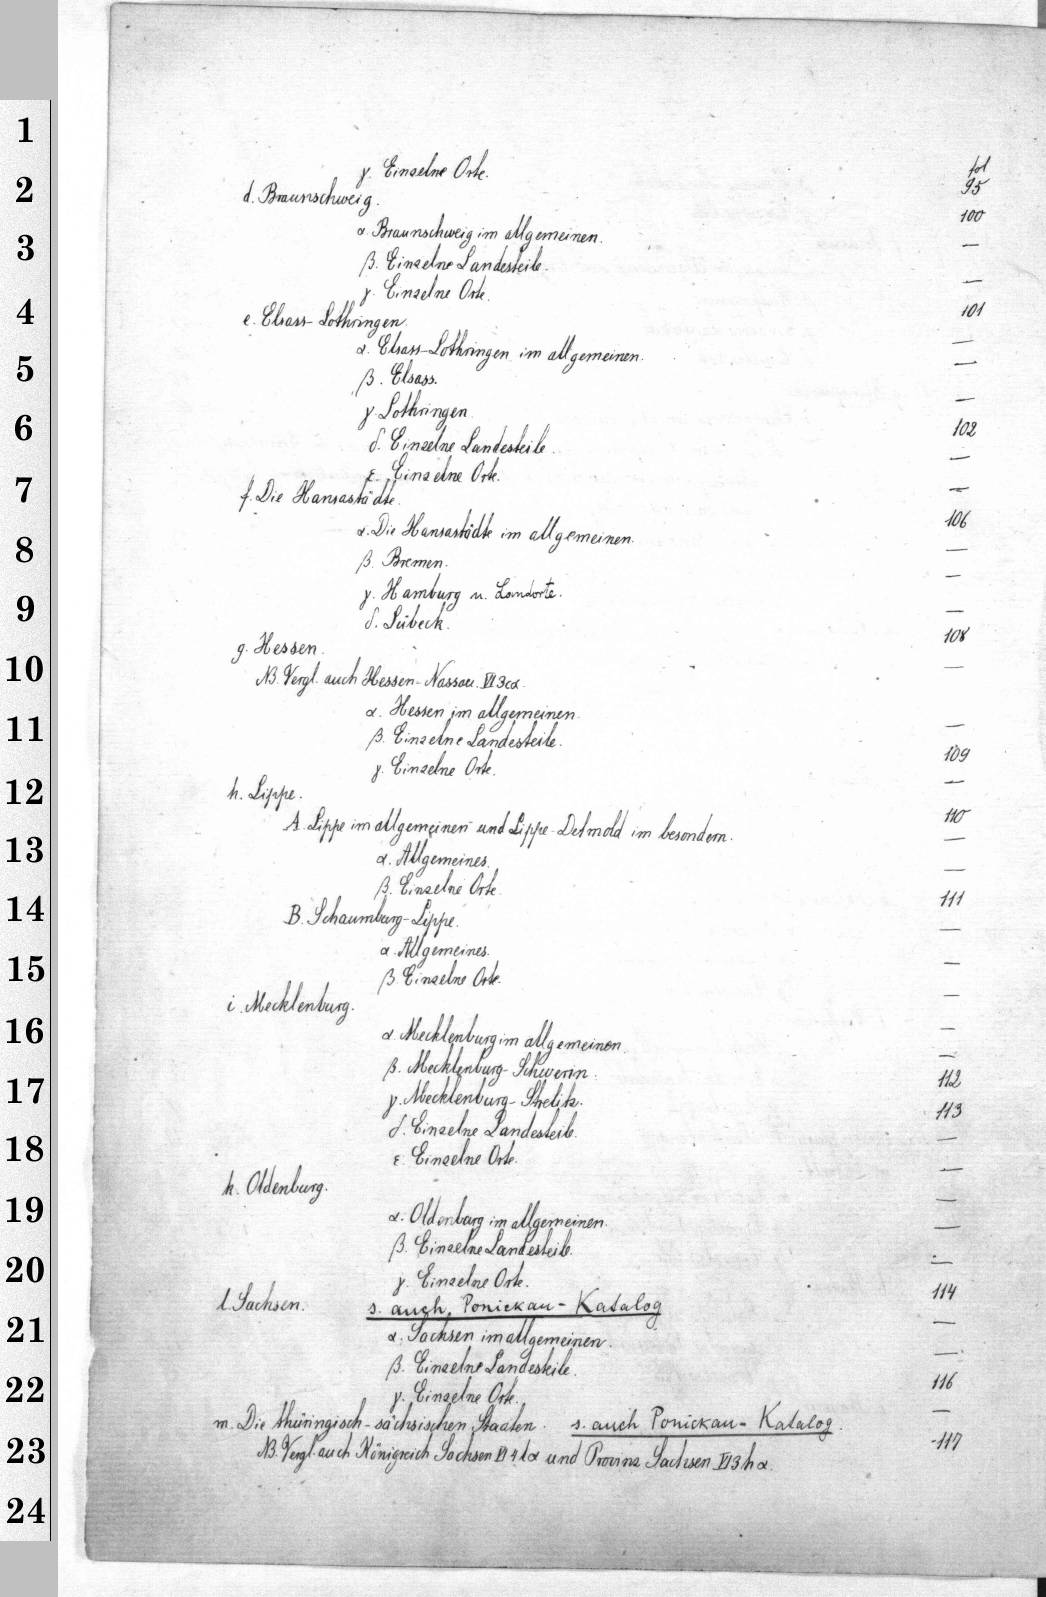 1
2
3
4
5
6
7
8
9
10
11
12
13
14
15
16
17
18
19
20
21
22
23
24
fol
γ. Einzelne Orte. 95
d. Braunschweig. 100
α. Braunschweig im allgemeinen. —
β. Einzelne Landesteile. —
γ. Einzelne Orte. 101
e. Elsass-Lothringen. —
α. Elsass-Lothringen im allgemeinen. —
β. Elsass. —
γ. Lothringen. 102
δ. Einzelne Landesteile. —
ε. Einzelne Orte. —
f. Die Hansastädte. 106
α. Die Hansastädte im allgemeinen. —
β. Bremen. —
γ. Hamburg u. Landorte. —
δ. Lübeck. 108
g. Hessen. —
NB. Vergl. auch Hessen-Nassau. VI3cα.
α. Hessen im allgemeinen. —
β. Einzelne Landesteile. 109
γ. Einzelne Orte. —
h. Lippe. 110
A. Lippe im allgemeinen und Lippe-Detmold im besondern. —
α. Allgemeines. —
β. Einzelne Orte. 111
B. Schaumburg-Lippe. —
α. Allgemeines. —
β. Einzelne Orte. —
i. Mecklenburg. —
α. Mecklenburg im allgemeinen. —
β. Mecklenburg-Schwerin. 112
γ. Mecklenburg-Strelitz. 113
δ. Einzelne Landesteile. —
ε. Einzelne Orte. —
k. Oldenburg. —
α. Oldenburg im allgemeinen. —
β. Einzelne Landesteile. —
γ. Einzelne Orte. 114
l. Sachsen. s. auch Ponickau-Katalog —
α. Sachsen im allgemeinen. —
β. Einzelne Landesteile. 116
γ. Einzelne Orte. —
m. Die thüringisch-sächsischen Staaten. s. auch Ponickau-Katalog. 117
NB. Vergl. auch Königreich Sachsen VI4lα und Provinz Sachsen VI3hα.